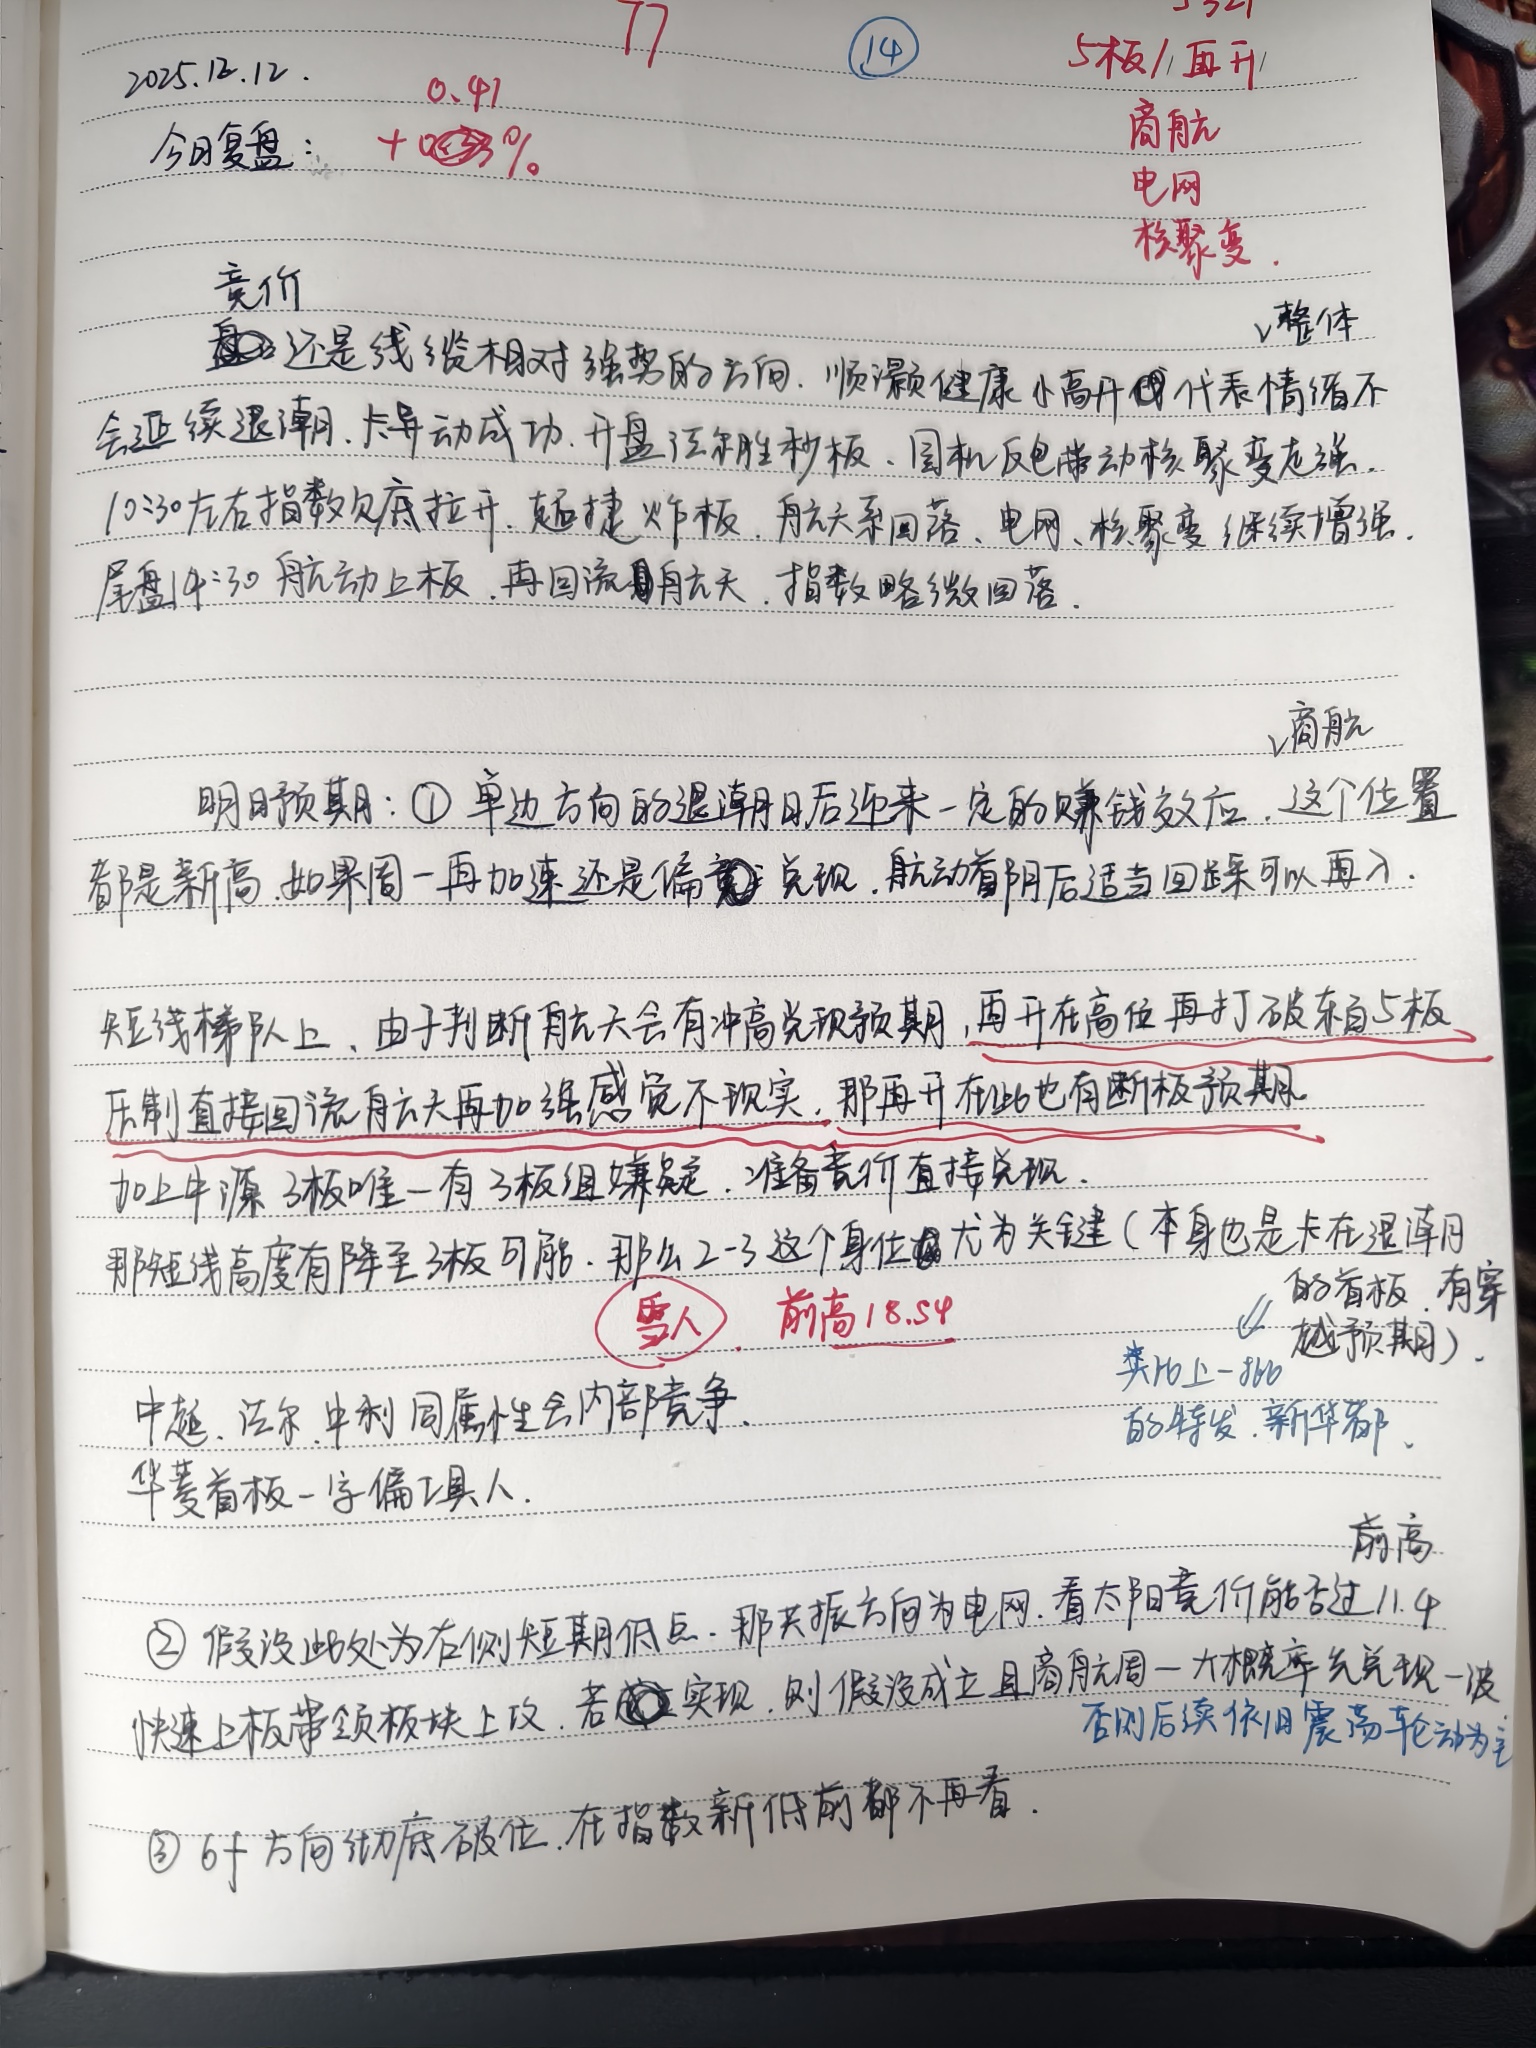 77
14
5321
5板/再升
2025.12.12.
0.41
今日复盘: +0 %
商航
电网
核聚变.
竞价
整体
还是线缆相对强势的方向.顺灏健康小高开代表情绪不
会延续退潮、卡异动成功.开盘法尔胜秒板、国机反包带动核聚变走强.
10:30左右指数欠底拉开.超捷炸板.航天系回落、电网、核聚变继续增强.
尾盘14:30航动上板.再回流航天.指数略微回落.
商航
明日预期:①单边方向的退潮日后迎来一定的赚钱效应.这个位置
都是新高.如果周一再加速还是偏兑现.航动首阴后适当回踩可以再入.
短线梯队上、由于判断航天会有冲高兑现预期,再升在高位再打破东百5板
压制直接回流航天再加强感觉不现实.那再升在此也有断板预期.
加上中源3板唯一有3板组嫌疑.准备竞价直接兑现.
那短线高度有降至3板可能.那么2-3这个身位尤为关键(本身也是卡在退潮日
的首板.有穿
越预期).
雪人. 前高18.54
类比上一批
的特发.新华都.
中超、法尔、中利同属性会内部竞争.
华菱首板一字偏工具人.
前高
②假设此处为右侧短期低点.那共振方向为电网.看太阳竞价能否过11.4
快速上板带领板块上攻.若实现.则假设成立且商航周一大概率先兑现一波
否则后续依旧震荡轮动为主
③6f方向彻底破位.在指数新低前都不再看.